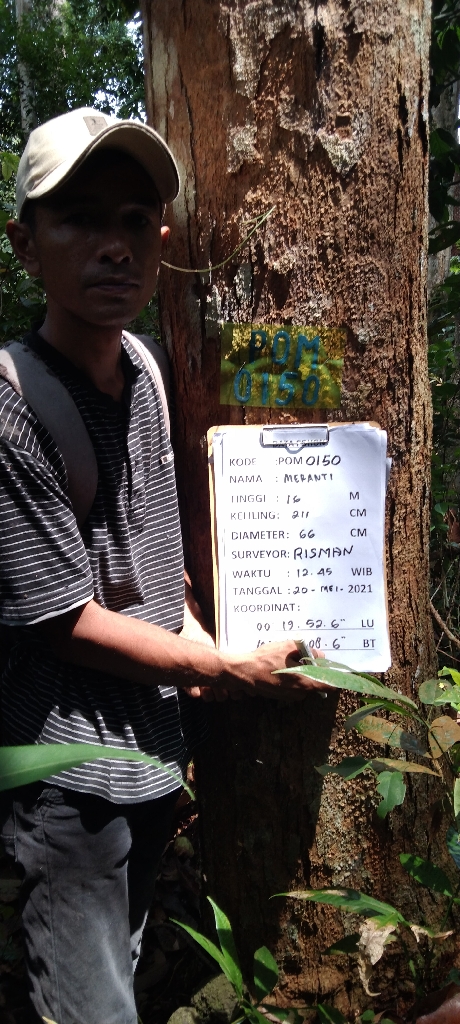 POM
0150
DATA POHON
KODE :POM 0150
NAMA : MERANTI
TINGGI : 16 M
KELILING: 211 CM
DIAMETER: 66 CM
SURVEYOR: RISMAN
WAKTU : 12.45 WIB
TANGGAL :20 - MEI - 2021
KOORDINAT:
00 19.52.6" LU
08.6" BT